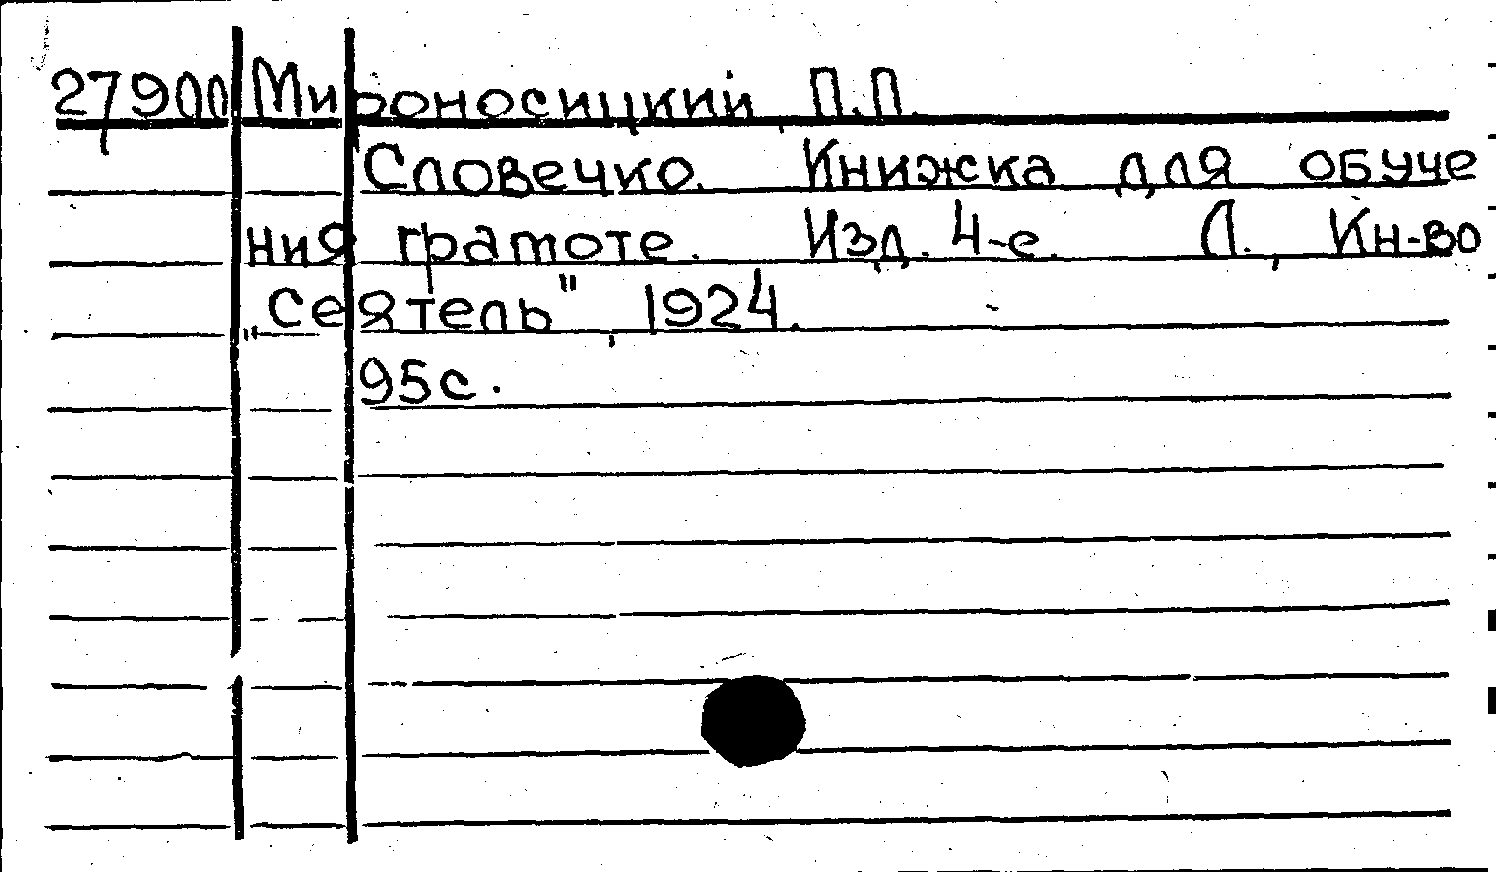 27900 Мироносицкий, П.П.
Словечко. Книжка для обуче
ния грамоте. Изд. 4-е. Л., Кн-во
„Сеятель", 1924.
95с.